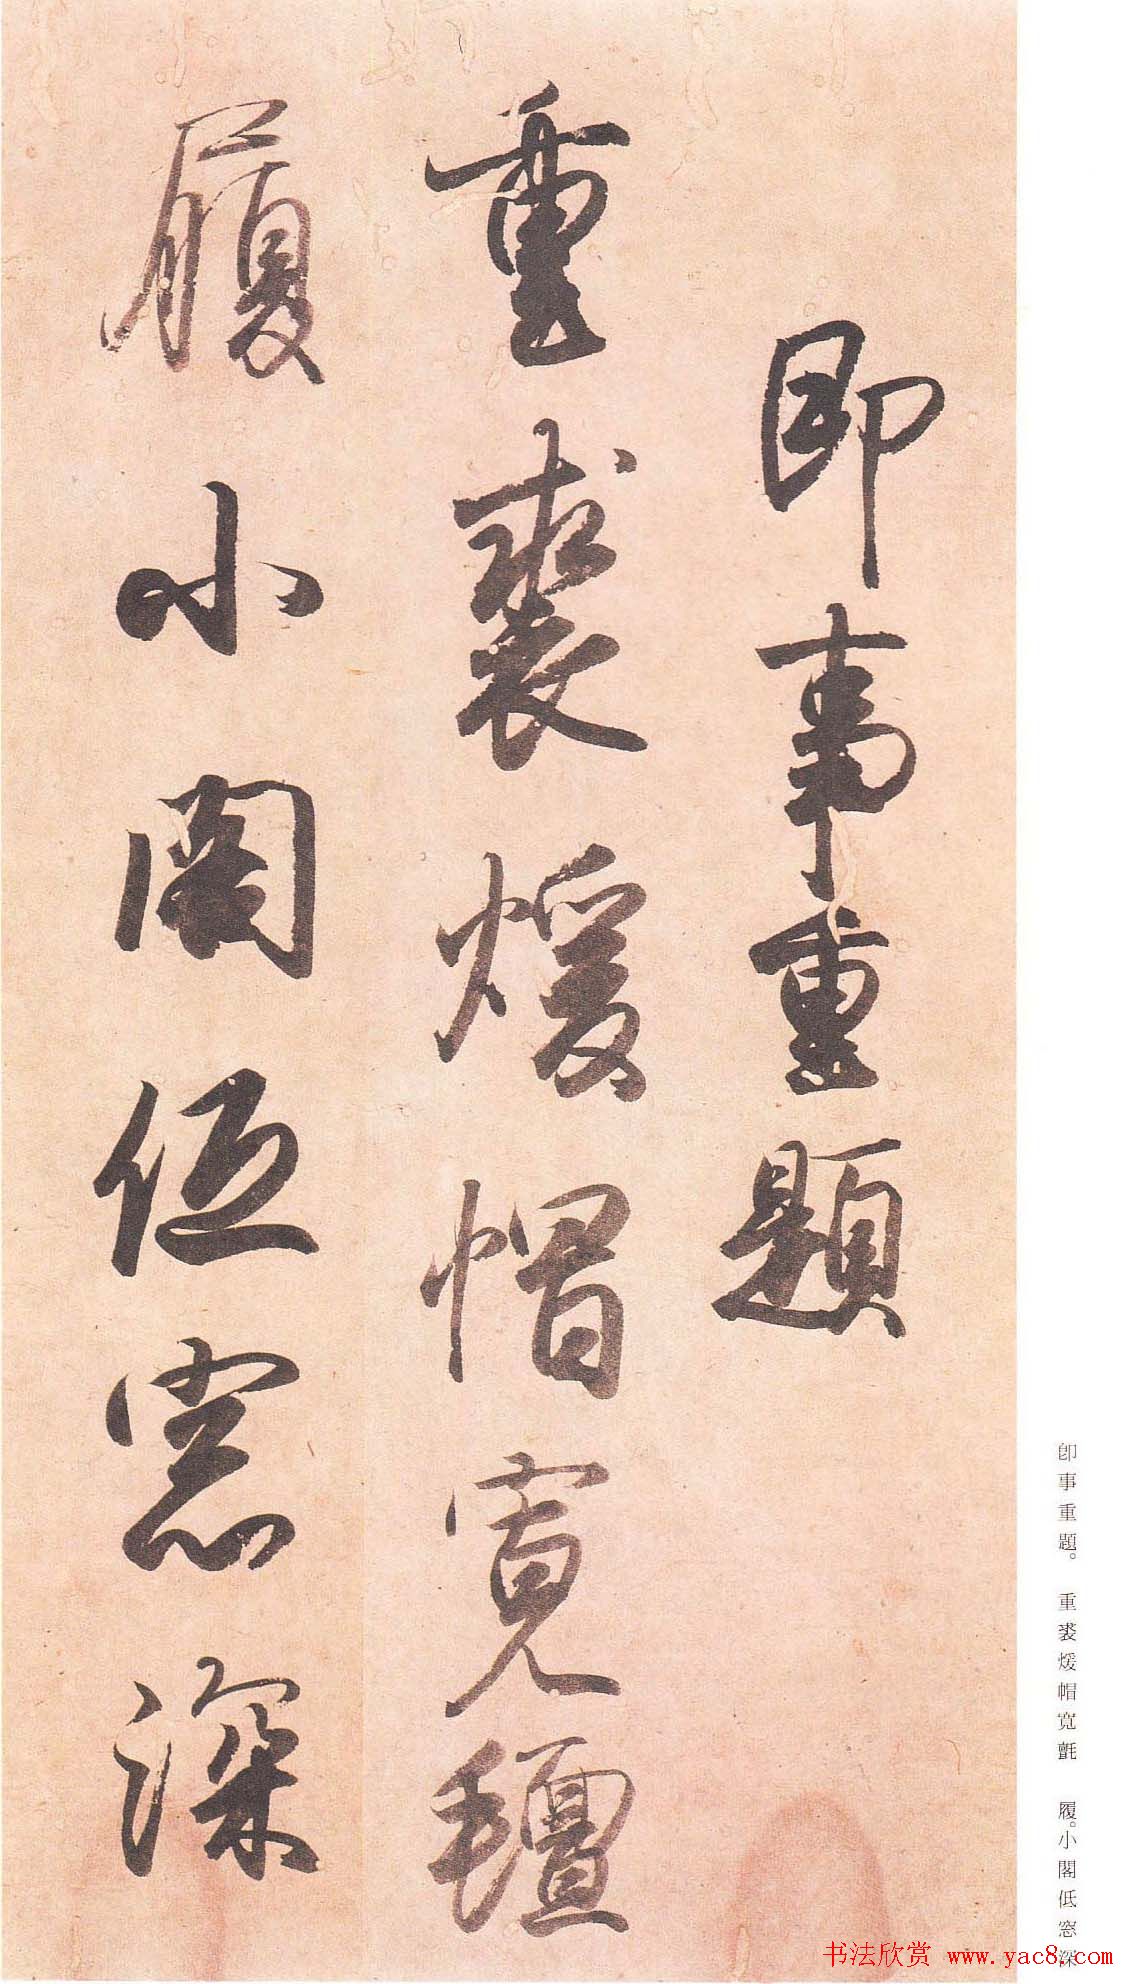 即事重題
重裘煖帽寬氊
履小閣低窓深
卽事重題。 重裘煖帽寬氈 履。小閣低窓深
书法欣赏 www.yac8.com